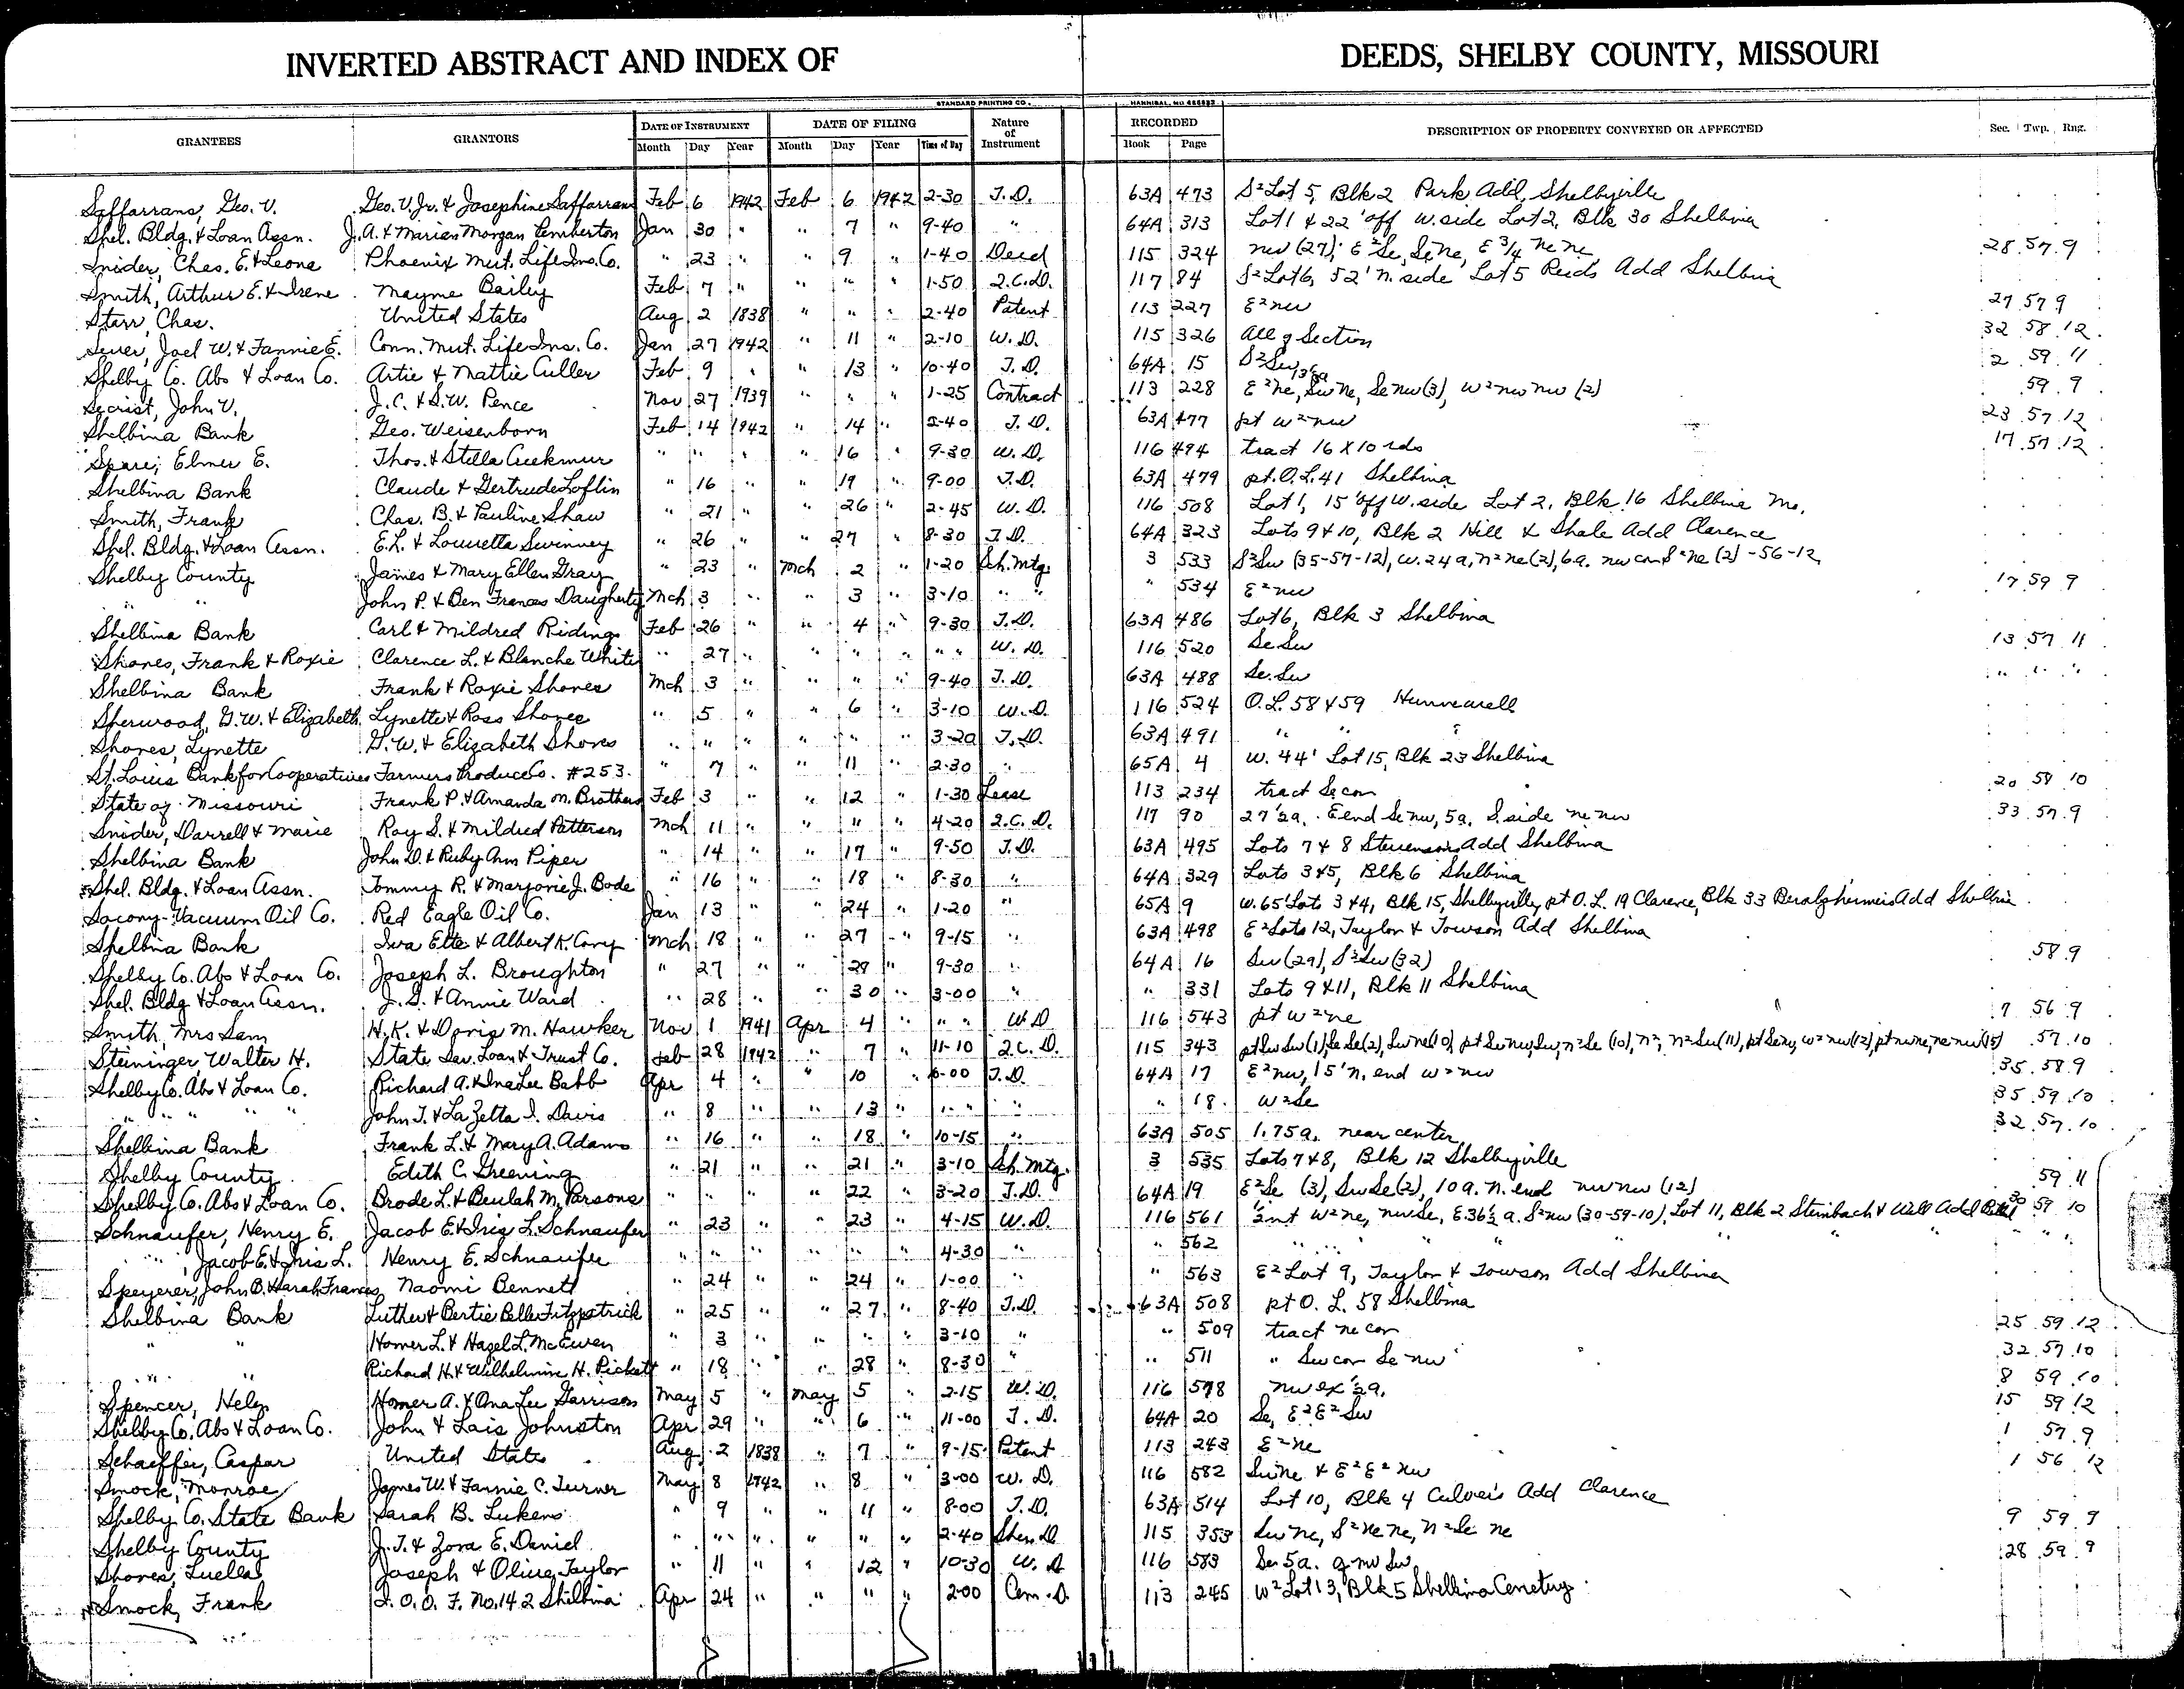 INVERTED ABSTRACT AND INDEX OF DEEDS, SHELBY COUNTY, MISSOURI
STANDARD PRINTING CO. HANNIBAL, MO
GRANTEES GRANTORS DATE OF INSTRUMENT DATE OF FILING Nature of Instrument RECORDED DESCRIPTION OF PROPERTY CONVEYED OR AFFECTED Sec. Twp. Rng.
Month Day Year Month Day Year Time of Day Book Page
Saffarrans, Geo. V. Geo. V. Jr. & Josephine Saffarrans Feb 6 1942 Feb 6 1942 2-30 T.D. 63A 473 S² Lot 5, Blk 2 Park Add. Shelbyville
Shel. Bldg. & Loan Assn. J.A. & Marian Morgan Pemberton Jan 30 " " 7 " 9-40 " 64A 313 Lot 1 & 22' off W. side Lot 2, Blk 30 Shelbina
Snider, Chas. E. & Leona Phoenix Mut. Life Ins. Co. " 23 " " 9 " 1-40 Deed 115 324 nw (27); E² Se, Se ne, E 3/4 ne ne 28 57 9
Smith, Arthur E. & Irene Mayme Bailey Feb 7 " " " " 1-50 Q.C.D. 117 84 S² Lot 6, 52' n. side Lot 5 Reids Add Shelbina
Starr, Chas. United States Aug 2 1838 " " " 2-40 Patent 113 227 E² nw 27 57 9
Sever, Joel W. & Fannie E. Conn. Mut. Life Ins. Co. Jan 27 1942 " 11 " 2-10 W.D. 115 326 All of Section 32 58 12
Shelby Co. Abs & Loan Co. Artie & Mattie Culler Feb 9 " " 13 " 10-40 T.D. 64A 15 S² Sw 2 59 11
Secrist, John V. J.C. & S.W. Pence Nov 27 1939 " " " 1-25 Contract 113 228 E² ne, Sw ne, Se nw (3), W² nw nw (2) 59 9
Shelbina Bank Geo. Weisenborn Feb 14 1942 " 14 " 2-40 T.D. 63A 477 pt W² nw 23 57 12
Elmer E. Thos. & Stella Creekmur " " " " 16 " 9-30 W.D. 116 494 tract 16 X 10 rds 17 57 12
Shelbina Bank Claude & Gertrude Loflin " 16 " " 19 " 9-00 T.D. 63A 479 pt. O.L. 41 Shelbina
Smith, Frank Chas. B. & Pauline Shaw " 21 " " 26 " 2-45 W.D. 116 508 Lot 1, 15' off W. side Lot 2, Blk 16 Shelbina Mo.
Shel. Bldg. & Loan Assn. E.L. & Louretta Swinney " 26 " " 27 " 8-30 T.D. 64A 323 Lots 9 & 10, Blk 2 Hill & Shale Add Clarence
Shelby County James & Mary Ellen Gray " 23 " Mch 2 " 1-20 Sch. Mtg. 3 533 S² Sw (35-57-12), W. 24 a, n² ne (2), 6 a. nw cor S² ne (2) -56-12
" " John P. & Ben Frances Daugherty Mch 3 " " 3 " 3-10 " " " 534 E² nw 17 59 9
Shelbina Bank Carl & Mildred Ridings Feb 26 " " 4 " 9-30 T.D. 63A 486 Lot 6, Blk 3 Shelbina
Shores, Frank & Roxie Clarence L. & Blanche White " 27 " " " " " " W.D. 116 520 Se Sw 13 57 11
Shelbina Bank Frank & Roxie Shores Mch 3 " " " " 9-40 T.D. 63A 488 Se. Sw " " "
Sherwood, G.W. & Elizabeth Lynette & Ross Shores " 5 " " 6 " 3-10 W.D. 116 524 O.L. 58 & 59 Hunnewell
Shores, Lynette G.W. & Elizabeth Shores " " " " " " 3-20 T.D. 63A 491 " " "
St. Louis Bank for Cooperatives Farmers Produce Co. #253. " 7 " " 11 " 2-30 " 65A 4 W. 44' Lot 15, Blk 23 Shelbina
State of Missouri Frank P. & Amanda M. Brothers Feb 3 " " 12 " 1-30 Lease 113 234 tract Se cor 20 58 10
Snider, Darrell & Marie Roy S. & Mildred Patterson Mch 11 " " " " 4-20 Q.C.D. 117 90 27½ a. E end Se nw, 5 a. S. side ne nw 33 57 9
Shelbina Bank John D. & Ruby Ann Piper " 14 " " 17 " 9-50 T.D. 63A 495 Lots 7 & 8 Stevensons Add Shelbina
Shel. Bldg. & Loan Assn. Tommy R. & Marjorie J. Bode " 16 " " 18 " 8-30 " 64A 329 Lots 3 & 5, Blk 6 Shelbina
Socony-Vacuum Oil Co. Red Eagle Oil Co. Jan 13 " " 24 " 1-20 " 65A 9 W. 65' Lots 3 & 4, Blk 15, Shelbyville, pt O.L. 19 Clarence, Blk 33 Add Shelbina
Shelbina Bank Iva Etta & Albert K. Cory Mch 18 " " 27 " 9-15 " 63A 498 E² Lots 12, Taylor & Towson Add Shelbina
Shelby Co. Abs & Loan Co. Joseph L. Broughton " 27 " " 28 " 9-30 " 64A 16 Sw (29), S² Sw (32) 58 9
Shel. Bldg & Loan Assn. J.S. & Annie Ward " 28 " " 30 " 3-00 " " 331 Lots 9 & 11, Blk 11 Shelbina
Smith, Mrs Sam H.K. & Doris M. Hawker Nov 1 1941 Apr 4 " " " W.D 116 543 pt W² ne 7 56 9
Steininger, Walter H. State Sav. Loan & Trust Co. Feb 28 1942 " 7 " 11-10 Q.C.D. 115 343 pt Sw Sw (1), Se Se (2), Sw ne (10), pt Se nw, Sw, n² Se (10), n², n² Sw (11), pt Se nw, W² nw (12), pt nw ne, ne nw (15) 57 10
Shelby Co. Abs & Loan Co. Richard A. & Ina Lee Babb Apr 4 " " 10 " -00 T.D. 64A 17 E² nw, 15' n. end W² nw 35 58 9
" " " " John T. & La Zetta I. Davis " 8 " " 13 " " " " 18 W² Se 35 59 10
Shelbina Bank Frank L. & Mary A. Adams " 16 " " 18 " 10-15 " 63A 505 1.75 a. near center 32 57 10
Shelby County Edith C. Greening " 21 " " 21 " 3-10 Sch. Mtg. 3 535 Lots 7 & 8, Blk 12 Shelbyville
Shelby Co. Abs & Loan Co. Brode L. & Beulah M. Parsons " " " " 22 " 3-20 T.D. 64A 19 E² Se (3), Sw Se (2), 10 a. n. end nw nw (12) 59 11
Schnaufer, Henry E. Jacob E. & Iris L. Schnaufer " 23 " " 23 " 4-15 W.D. 116 561 ½ int W² ne, nw Se, E. 36½ a. S² nw (30-59-10), Lot 11, Blk 2 Steinbach & Will Add 30 59 10
" , Jacob E. & Iris L. Henry E. Schnaufer " " " " " " 4-30 " " 562 " " " " " " " "
Speyerer, John B. & Sarah Frances Naomi Bennett " 24 " " 24 " 1-00 " " 563 E² Lot 9, Taylor & Towson Add Shelbina
Shelbina Bank Luther & Bertie Belle Fitzpatrick " 25 " " 27 " 8-40 T.D. 63A 508 pt O.L. 58 Shelbina
" " Homer L. & Hazel L. McEwen " 3 " " " " 3-10 " " 509 tract ne cor 25 59 12
" " Richard H. & Wilhelmine H. Pickett " 18 " " 28 " 8-30 " " 511 " Sw cor Se nw 32 57 10
Spencer, Helen Homer A. & Ana Lee Garrison May 5 " May 5 " 2-15 W.D. 116 578 nw ex ½ a. 8 59 10
Shelby Co. Abs & Loan Co. John & Lois Johnston Apr 29 " " 6 " 11-00 T.D. 64A 20 Se, E² E² Sw 15 59 12
Schaeffer, Caspar United States Aug 2 1838 " 7 " 9-15 Patent 113 243 E² ne 1 57 9
Smock, Monroe James W. & Fannie C. Turner May 8 1942 " 8 " 3-00 W.D. 116 582 Sw ne & E² E² nw 1 56 12
Shelby Co. State Bank Sarah B. Lukens " 9 " " 11 " 8-00 T.D. 63A 514 Lot 10, Blk 4 Culver's Add Clarence
Shelby County J.T. & Zora E. Daniel " " " " " " 2-40 Sher. D 115 353 Sw ne, S² ne ne, n² Se ne 9 59 9
Shores, Luella Joseph & Olive Taylor " 11 " " 12 " 10-30 W.D 116 583 Se 5 a. of nw Sw 28 59 9
Smock, Frank I.O.O.F. No. 142 Shelbina Apr 24 " " " " 2-00 Cem. D. 113 245 W² Lot 13, Blk 5 Shelbina Cemetery